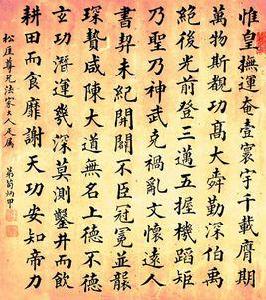 惟皇撫運奄壹寰宇千載膺期
萬物斯覩功高大舜勤深伯禹
絕後光前登三邁五握機蹈矩
乃聖乃神武克禍亂文懷遠人
書契未紀開闢不臣冠冕並襲
琛贄咸陳大道無名上德不德
玄功潛運幾深莫測鑿井而飲
耕田而食靡謝天功安知帝力
松庭尊兄法家大人屬
弟荀炳甲